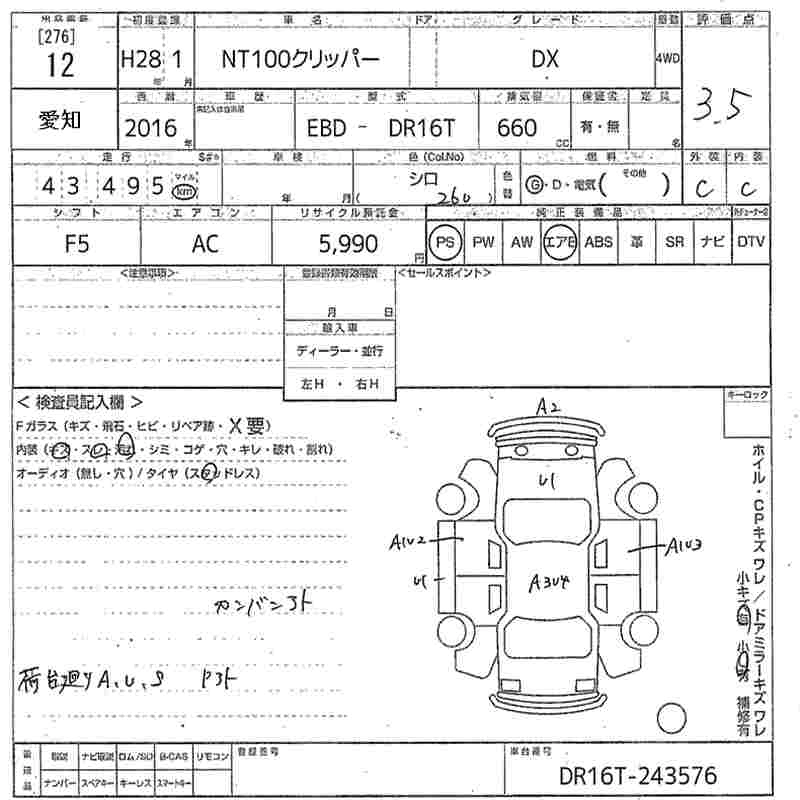 [276]
12
初度登録 車名 ドア グレード 駆動 評価点
H28 1 年 月 NT100クリッパー DX 4WD 3.5
愛知
西暦 車歴 型式 排気量 保証書 定員
2016 年 EBD - DR16T 660 CC 有・無 名
走行 S#※ 車検 色(Col.No) 燃料 外装 内装
43 495 マイル km 年 月 シロ ( 260 ) 色替 G・D・電気( その他 ) C C
シフト エアコン リサイクル預託金 純正装備品
F5 AC 5,990 円 PS PW AW エアB ABS 革 SR ナビ DTV
<注意事項> 登録書類有効期限 <セールスポイント>
月 日
輸入車
ディーラー・並行
左H ・ 右H
< 検査員記入欄 > キーロック
Fガラス (キズ・飛石・ヒビ・リペア跡・X要)
内装 (キズ・スレ・汚れ・シミ・コゲ・穴・キレ・破れ・割れ)
オーディオ (無し・穴) / タイヤ (スタッドレス)
A2
U1
A1U2
A1U3
U1
A3U4
カンバン跡
荷台廻りA、U、S
ホイル・CPキズ ワレ / ドアミラーキズ ワレ
小キズ有 小 補修有
取説 ナビ取説 ロム/SD B-CAS リモコン 登録番号 車台番号
ナンバー スペアキー キーレス スマートキー DR16T-243576